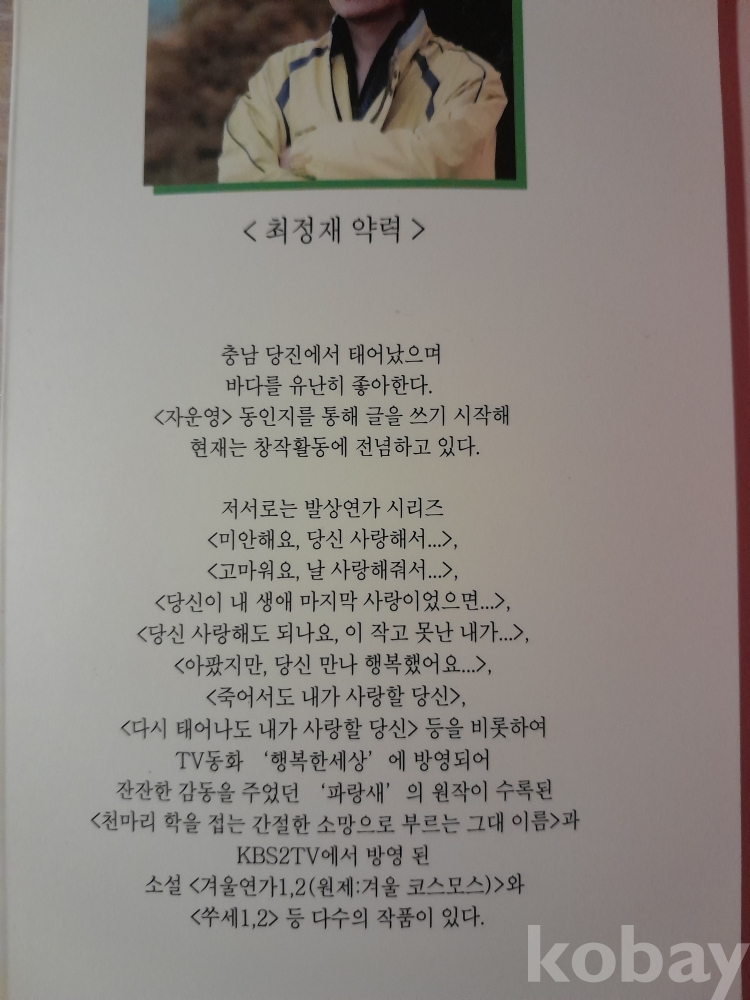 < 최정재 약력 >
충남 당진에서 태어났으며
바다를 유난히 좋아한다.
<자운영> 동인지를 통해 글을 쓰기 시작해
현재는 창작활동에 전념하고 있다.
저서로는 발상연가 시리즈
<미안해요, 당신 사랑해서...>,
<고마워요, 날 사랑해줘서...>,
<당신이 내 생애 마지막 사랑이었으면...>,
<당신 사랑해도 되나요, 이 작고 못난 내가...>,
<아팠지만, 당신 만나 행복했어요...>,
<죽어서도 내가 사랑할 당신>,
<다시 태어나도 내가 사랑할 당신> 등을 비롯하여
TV동화 ‘행복한세상’ 에 방영되어
잔잔한 감동을 주었던 ‘파랑새’ 의 원작이 수록된
<천마리 학을 접는 간절한 소망으로 부르는 그대 이름>과
KBS2TV에서 방영 된
소설 <겨울연가1,2(원제:겨울 코스모스)>와
<쑤세1,2> 등 다수의 작품이 있다.
kobay